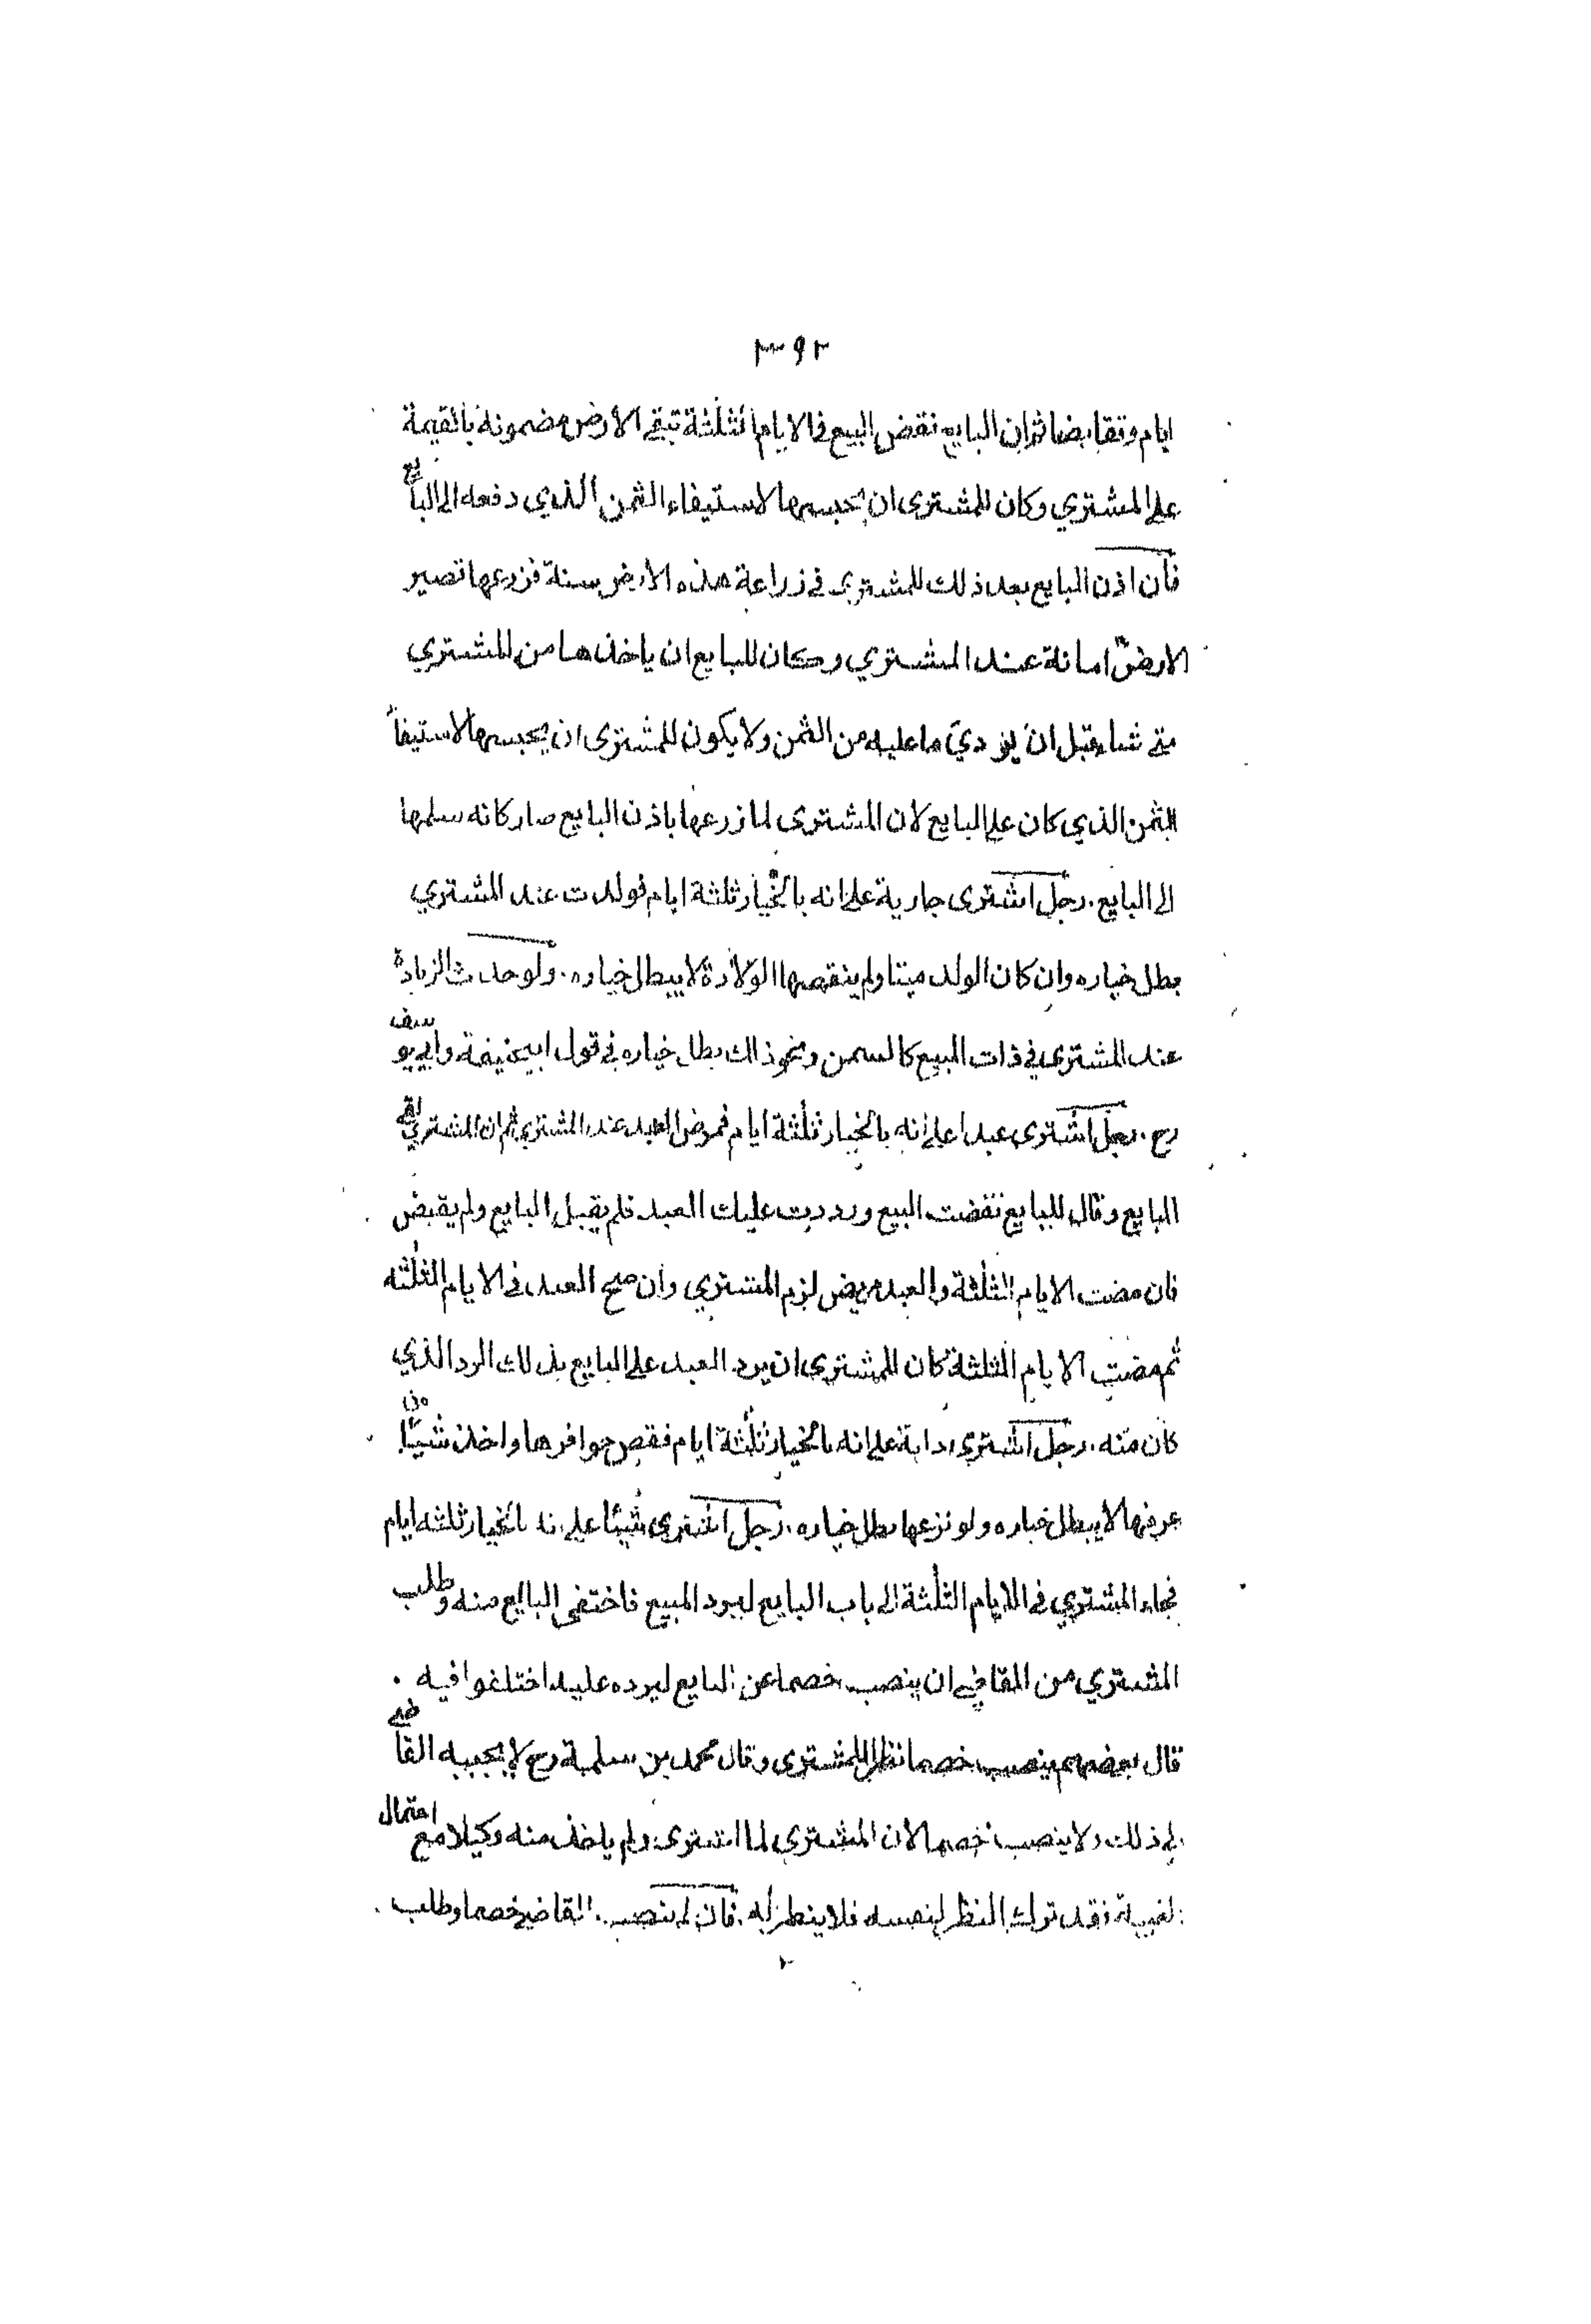 ٣٩٢
ايام وتقابضا ثم ان البايع نقض البيع في الايام الثلثة تبقى الارض مضمونة بالقيمة
على المشتري وكان للمشتري ان يحبسها لاستيفاء الثمن الذي دفعه الى البايع
فان اذن البايع بعد ذلك للمشتري في زراعة هذه الارض سنة فزرعها تصير
الارض امانة عند المشتري وكان للبايع ان ياخذها من المشتري
متى شاء قبل ان يؤدي ما عليه من الثمن ولا يكون للمشترى ان يحبسها لاستيفاء
الثمن الذي كان على البايع لان المشترى لما زرعها باذن البايع صار كانه سلمها
الى البايع . رجل اشترى جارية على انه بالخيار ثلثة ايام فولدت عند المشتري
بطل خياره وان كان الولد ميتا ولم ينقصها الولادة لا يبطل خياره . ولو حدث الزيادة
عند المشترى في ذات المبيع كالسمن ونحو ذلك بطل خياره في قول ابي حنيفة وابي يوسف
رح . رجل اشترى عبدا على انه بالخيار ثلثة ايام فمرض العبد عند المشتري ثم ان المشتري لقي
البايع وقال للبايع نقضت البيع ورددت عليك العبد فلم يقبل البايع ولم يقبض
فان مضت الايام الثلثة والعبد مريض لزم المشتري وان صح العبد في الايام الثلثه
ثم مضت الايام الثلثة كان للمشترى ان يرد العبد على البايع بذلك الرد الذي
كان منه . رجل اشترى دابة على انه بالخيار ثلثة ايام فقص حوافرها واخذ شيئا من
عرفها لا يبطل خياره ولو نزعها بطل خياره . رجل اشترى شيئا على انه بالخيار ثلثه ايام
فجاء المشتري في الايام الثلثة الى باب البايع ليرد المبيع فاختفى البايع منه وطلب
المشتري من القاضي ان ينصب خصما عن البايع ليرده عليه اختلفوا فيه .
قال بعضهم ينصب خصما نظرا للمشترى وقال محمد بن سلمة رح لا يجيبه القاضي
لى ذلك ولا ينصب خصما لان المشتري لما اشترى ولم ياخذ منه وكيلا مع احتمال
لغيبة فقد ترك النظر لنفسه فلا ينظر له . فان لم ينصب القاضي خصما وطلب